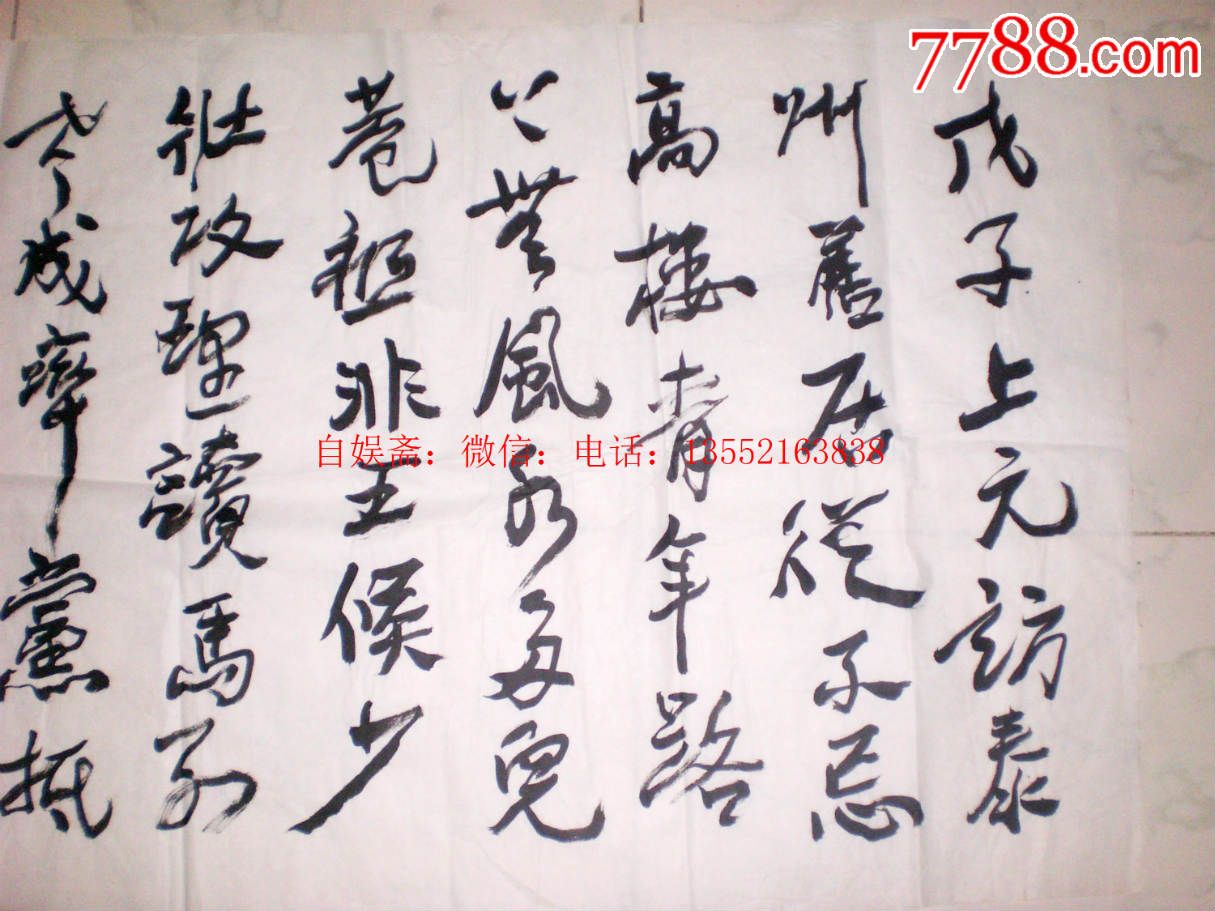 7788.com
戊子上元訪泰
州舊居從不忌
高樓青年路
無風水多兒
巷祖非王候少
壯攻理讀馬列
老成黨抵
自娱斋：微信：电话：13552163838